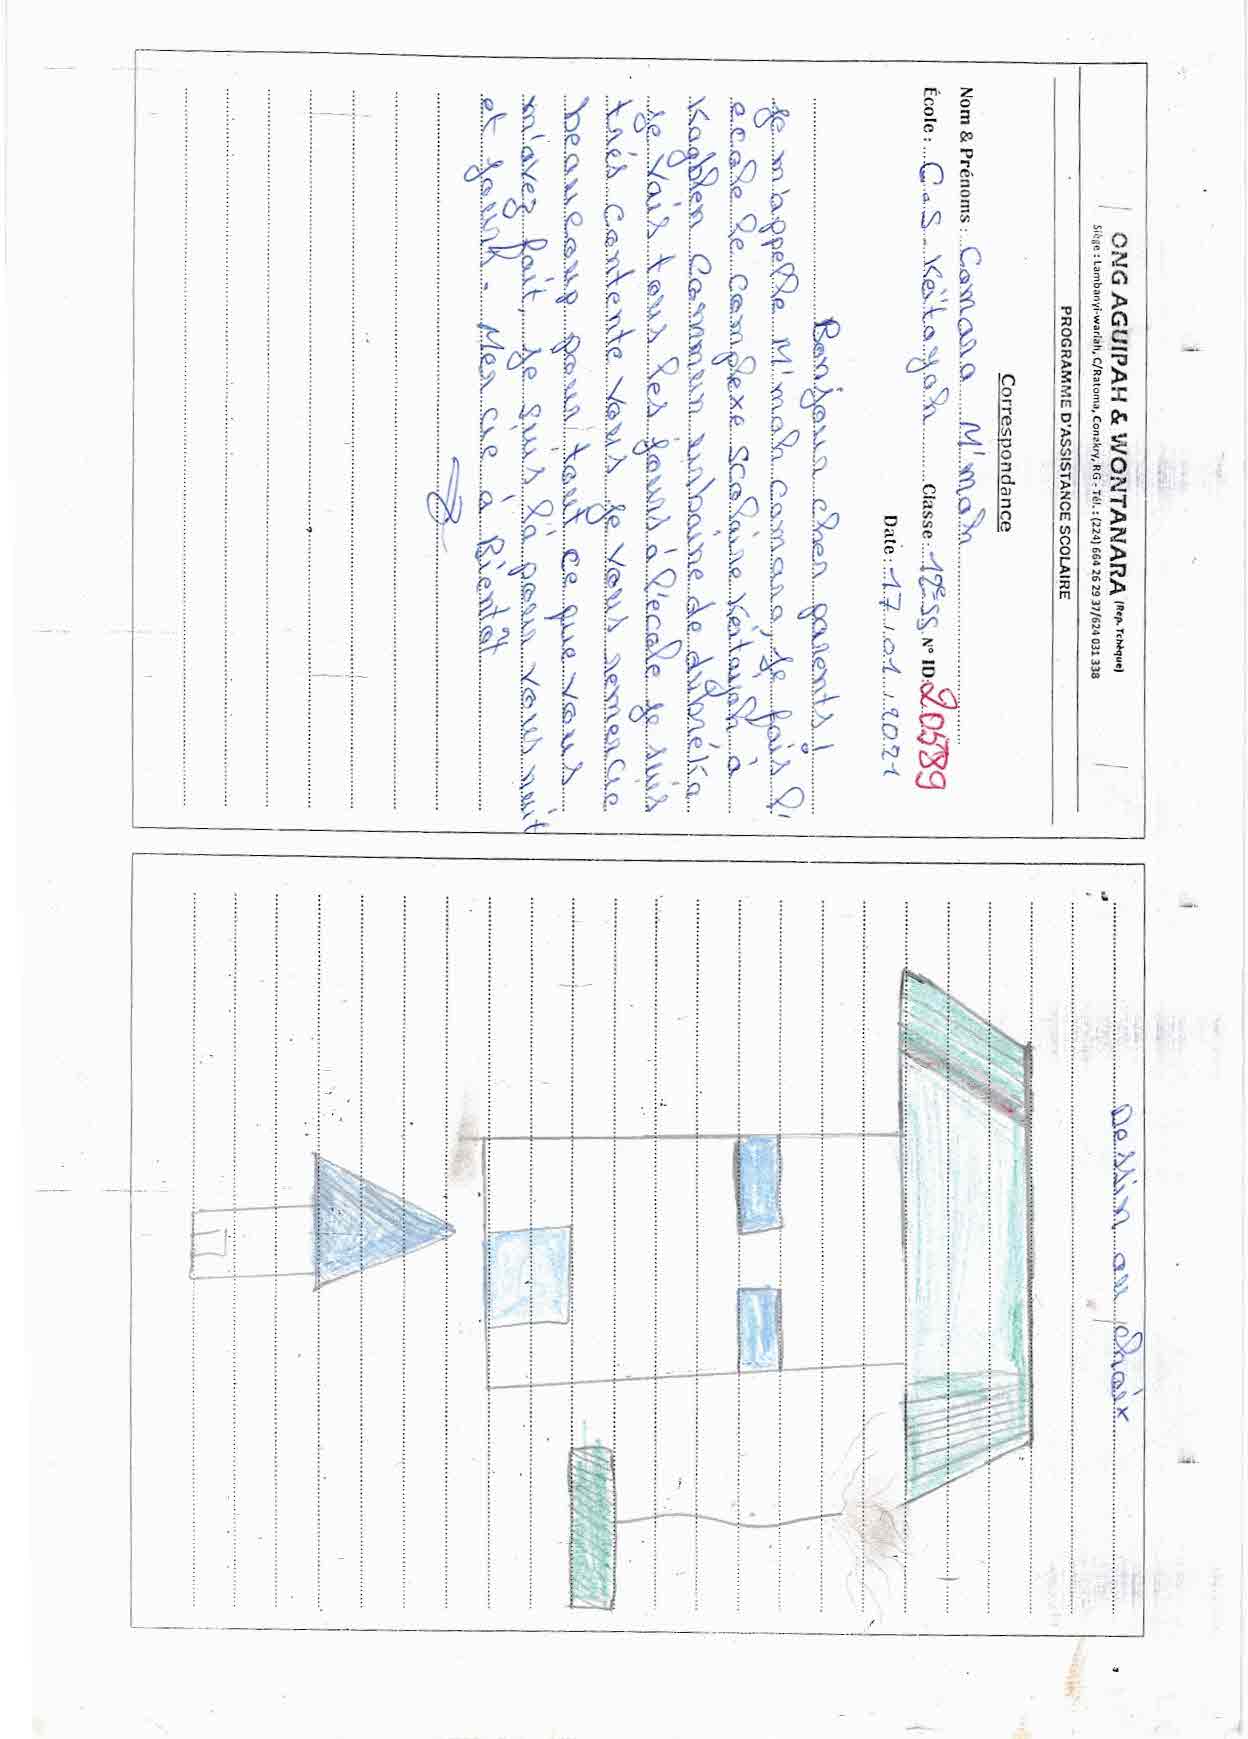 ONG AGUIPAH & WONTANARA (Rep. Tchèque)
Siège : Lambanyi-wariah, C/Ratoma, Conakry, RG - Tél. : (224) 664 26 29 37/624 031 338
PROGRAMME D'ASSISTANCE SCOLAIRE
Correspondance
Nom & Prénoms : Camara M'mah
École : C.S. Kéïtayah Classe : 12e SS N° ID: 205789
Date : 17/01/2021
Bonjour cher parents!
Je m'appelle M'mah camara, Je fais l'
ecole le complexe scolaire Kéitayah à
Kagblen Commun urbaine de dubréka
Je vais tous les jours à l'ecole je suis
très contente vous je vous remercie
beaucoup pour tout ce que vous
m'avez fait, je suis là pour vous nuit
et jour. Mer cie à Bientôt
Dessin au choix